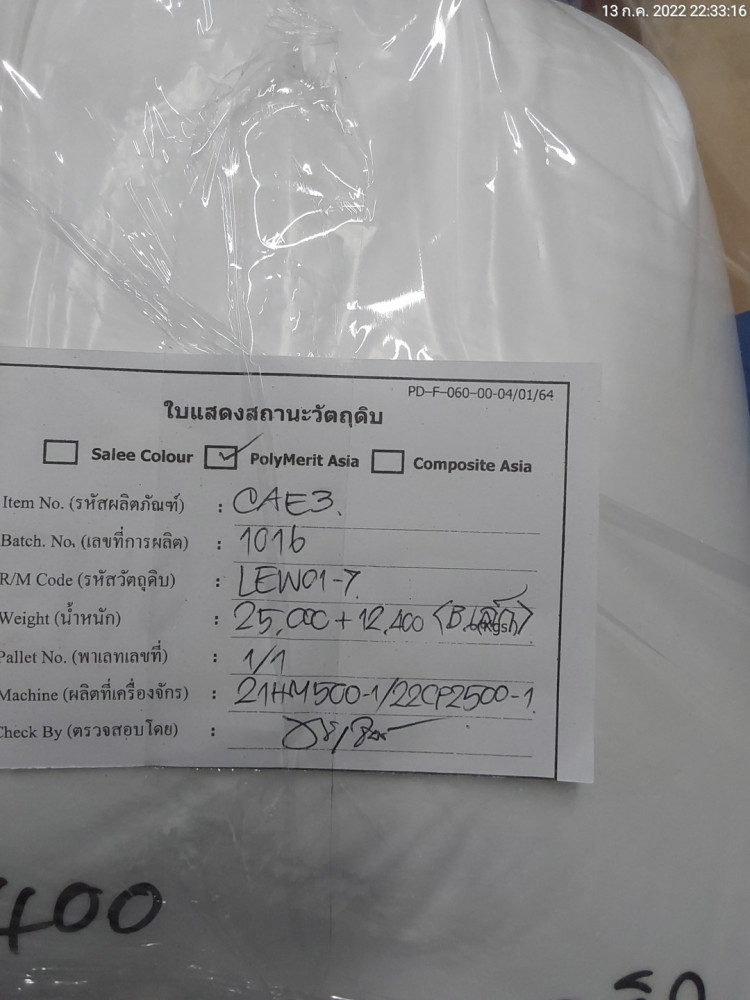 13 ก.ค. 2022 22:33:16
PD-F-060-00-04/01/64
ใบแสดงสถานะวัตถุดิบ
Salee Colour PolyMerit Asia Composite Asia
Item No. (รหัสผลิตภัณฑ์) : CAE3.
Batch. No. (เลขที่การผลิต) : 1016
R/M Code (รหัสวัตถุดิบ) : LEW01-7
Weight (น้ำหนัก) : 25,000 + 12,400
Pallet No. (พาเลทเลขที่) : 1/1
Machine (ผลิตที่เครื่องจักร) : 21HM500-1/22CP2500-1
Check By (ตรวจสอบโดย) :
400